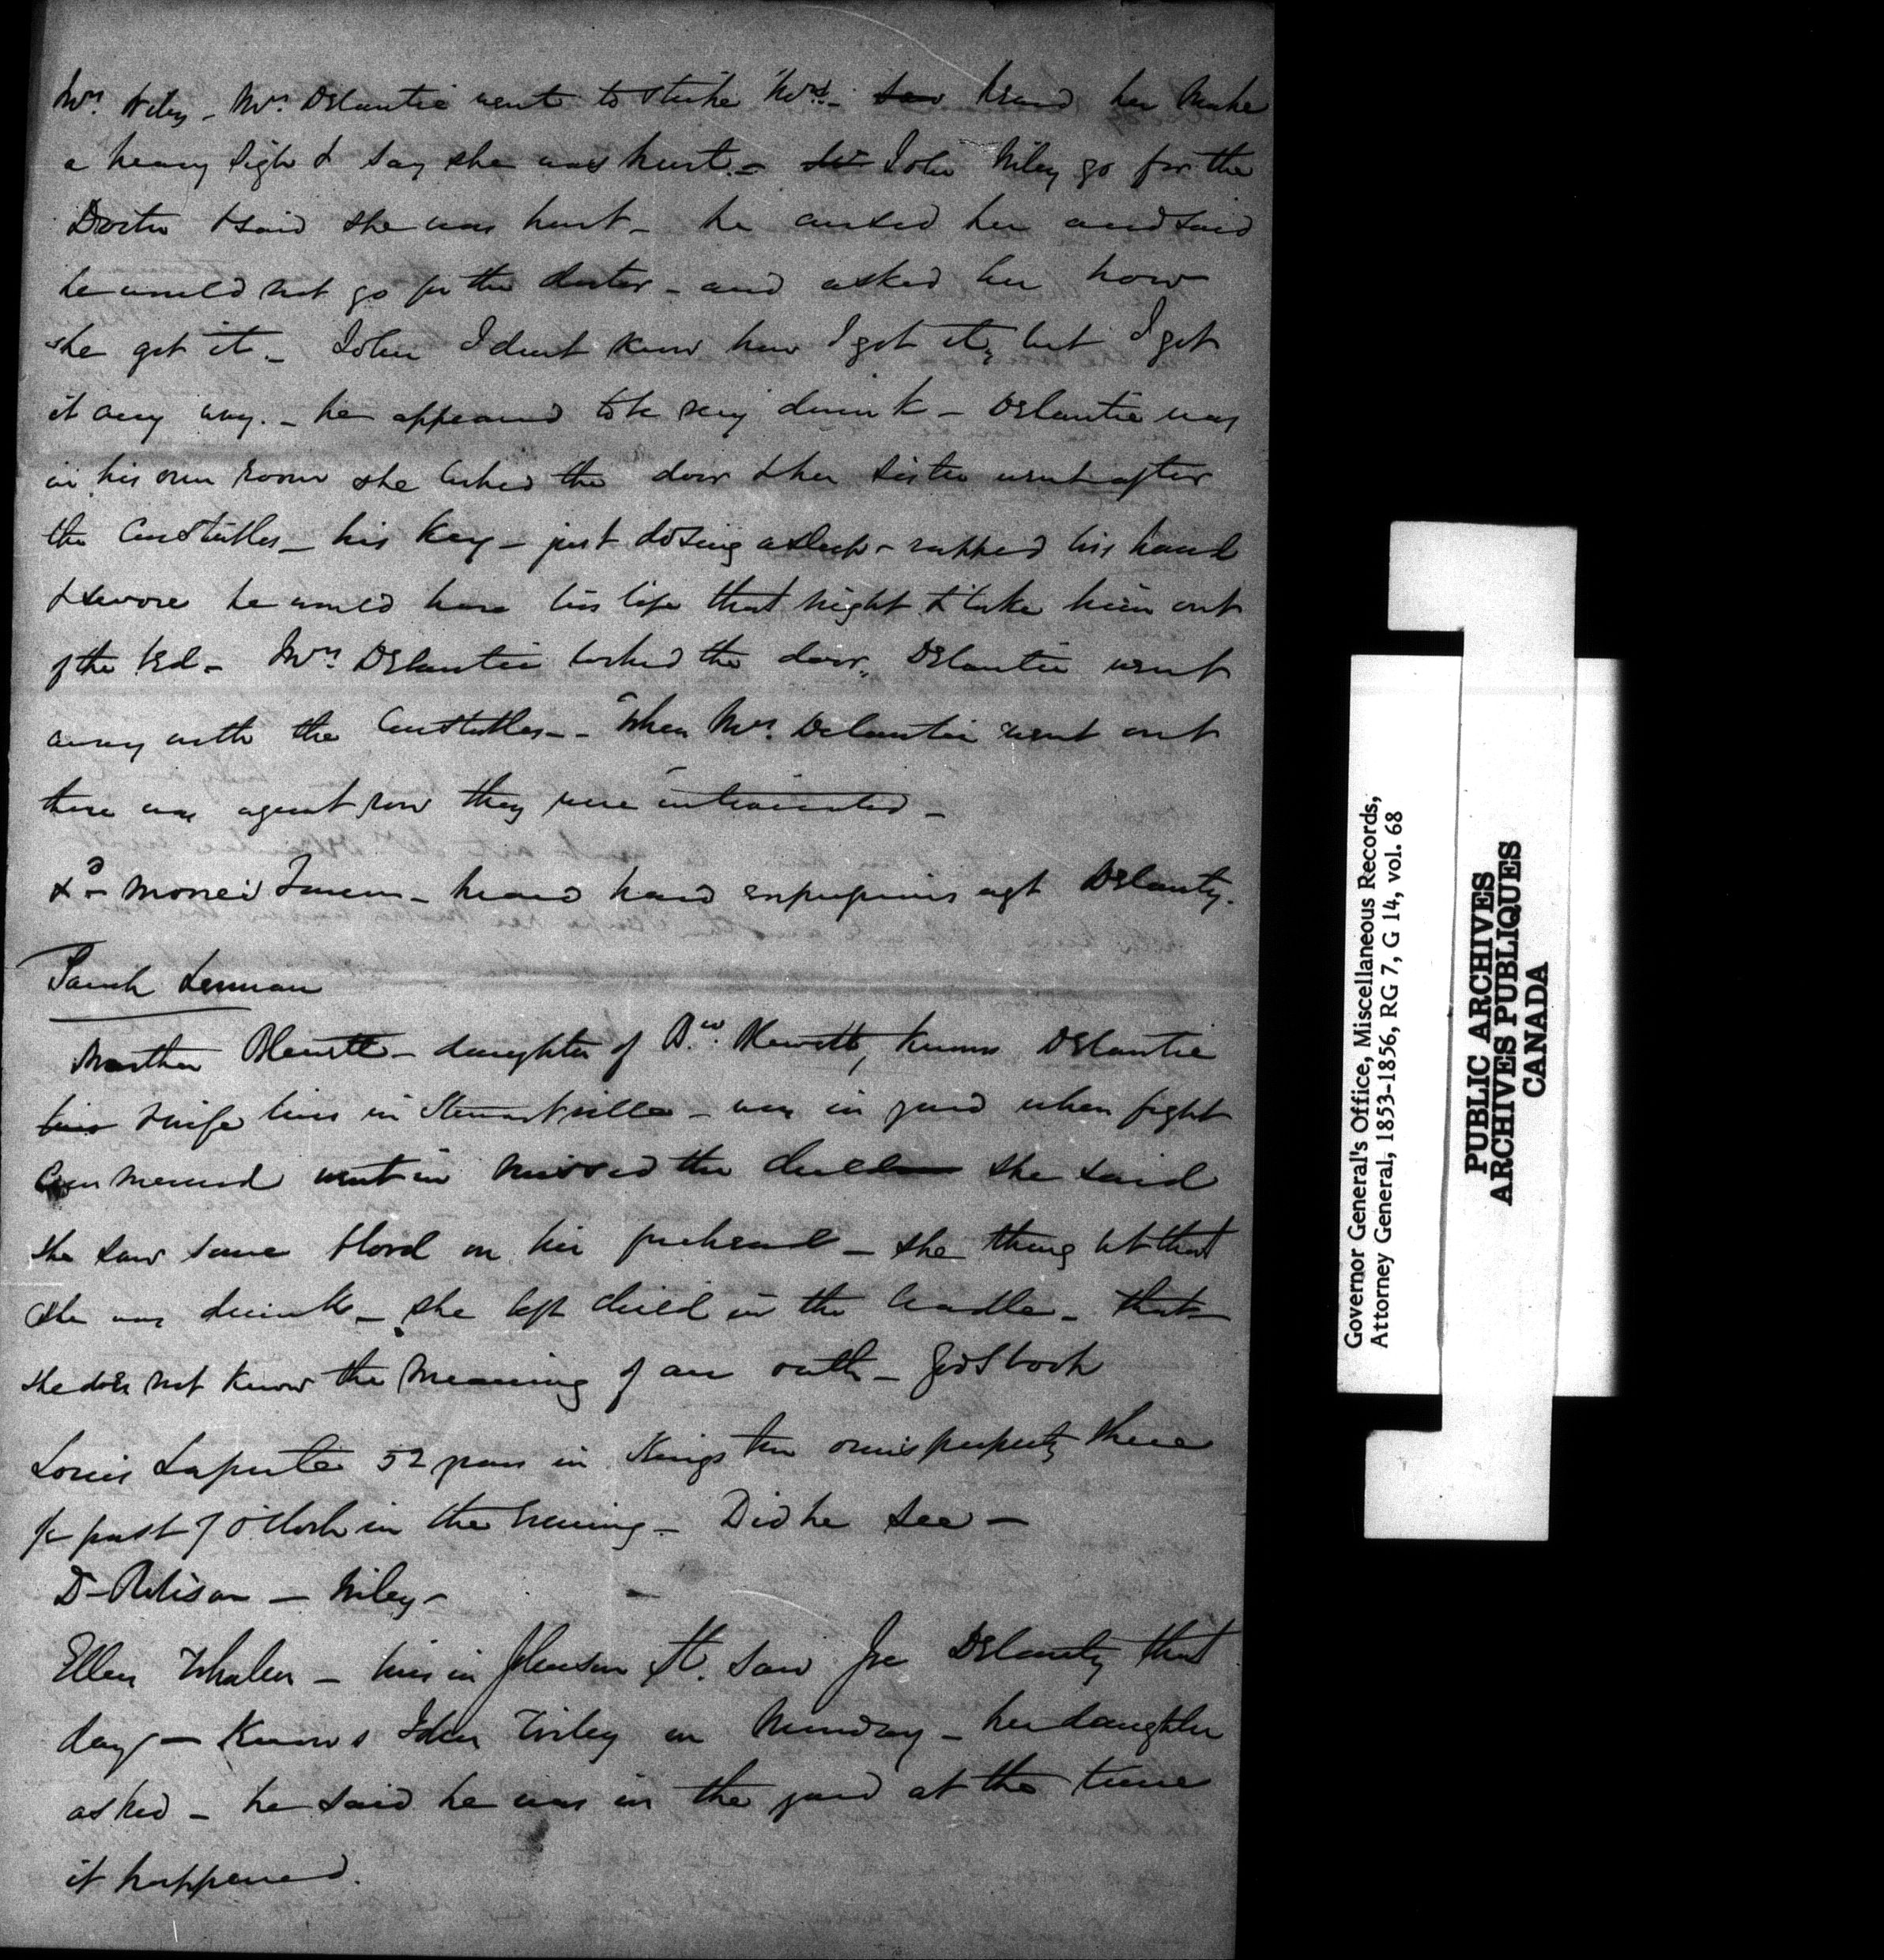 Mrs. Wiley - Mrs. Delantie went to strike Mrs. - saw heard her make
a heavy sigh & say she was hurt. - John Wiley go for the
Doctor & said she was hurt - he cursed her and said
he would not go for the doctor - and asked her how
she got it - John I dont know how I got it, but I got
it any way. - he appeared to be very drunk - Delantie was
in his own room she locked the door & her sister went after
the Constables - his key - just dozing asleep - rapped his hand
& swore he would have his life that night & take him out
of the bed - Mrs. Delantie locked the door, Delantie went
away with the Constables - When Mrs. Delantie went out
there was a great row they were intoxicated -
heard hard expressions agt Delanty.
Sarah
Martha Hewitt - daughter of Hewitt, knows Delantie
lives & wife lives in Stewartville - was in yard when fight
commenced went in missed the child she said
she saw some blood on her forehead - she thought that
she was drunk - she left child in the cradle - that
she does not know the meaning of an oath - Gods book
Louis Laporte 52 years in Kingston owns property there
past 7 oClock in the evening - Did he see -
Dr Robison - Wiley -
Ellen Whalen - lives in Johnson St. saw Delanty that
day - knows John Wiley on Monday - her daughter
asked - he said he was in the yard at the time
it happened.
Governor General's Office, Miscellaneous Records,
Attorney General, 1853-1856, RG 7, G 14, vol. 68
PUBLIC ARCHIVES
ARCHIVES PUBLIQUES
CANADA